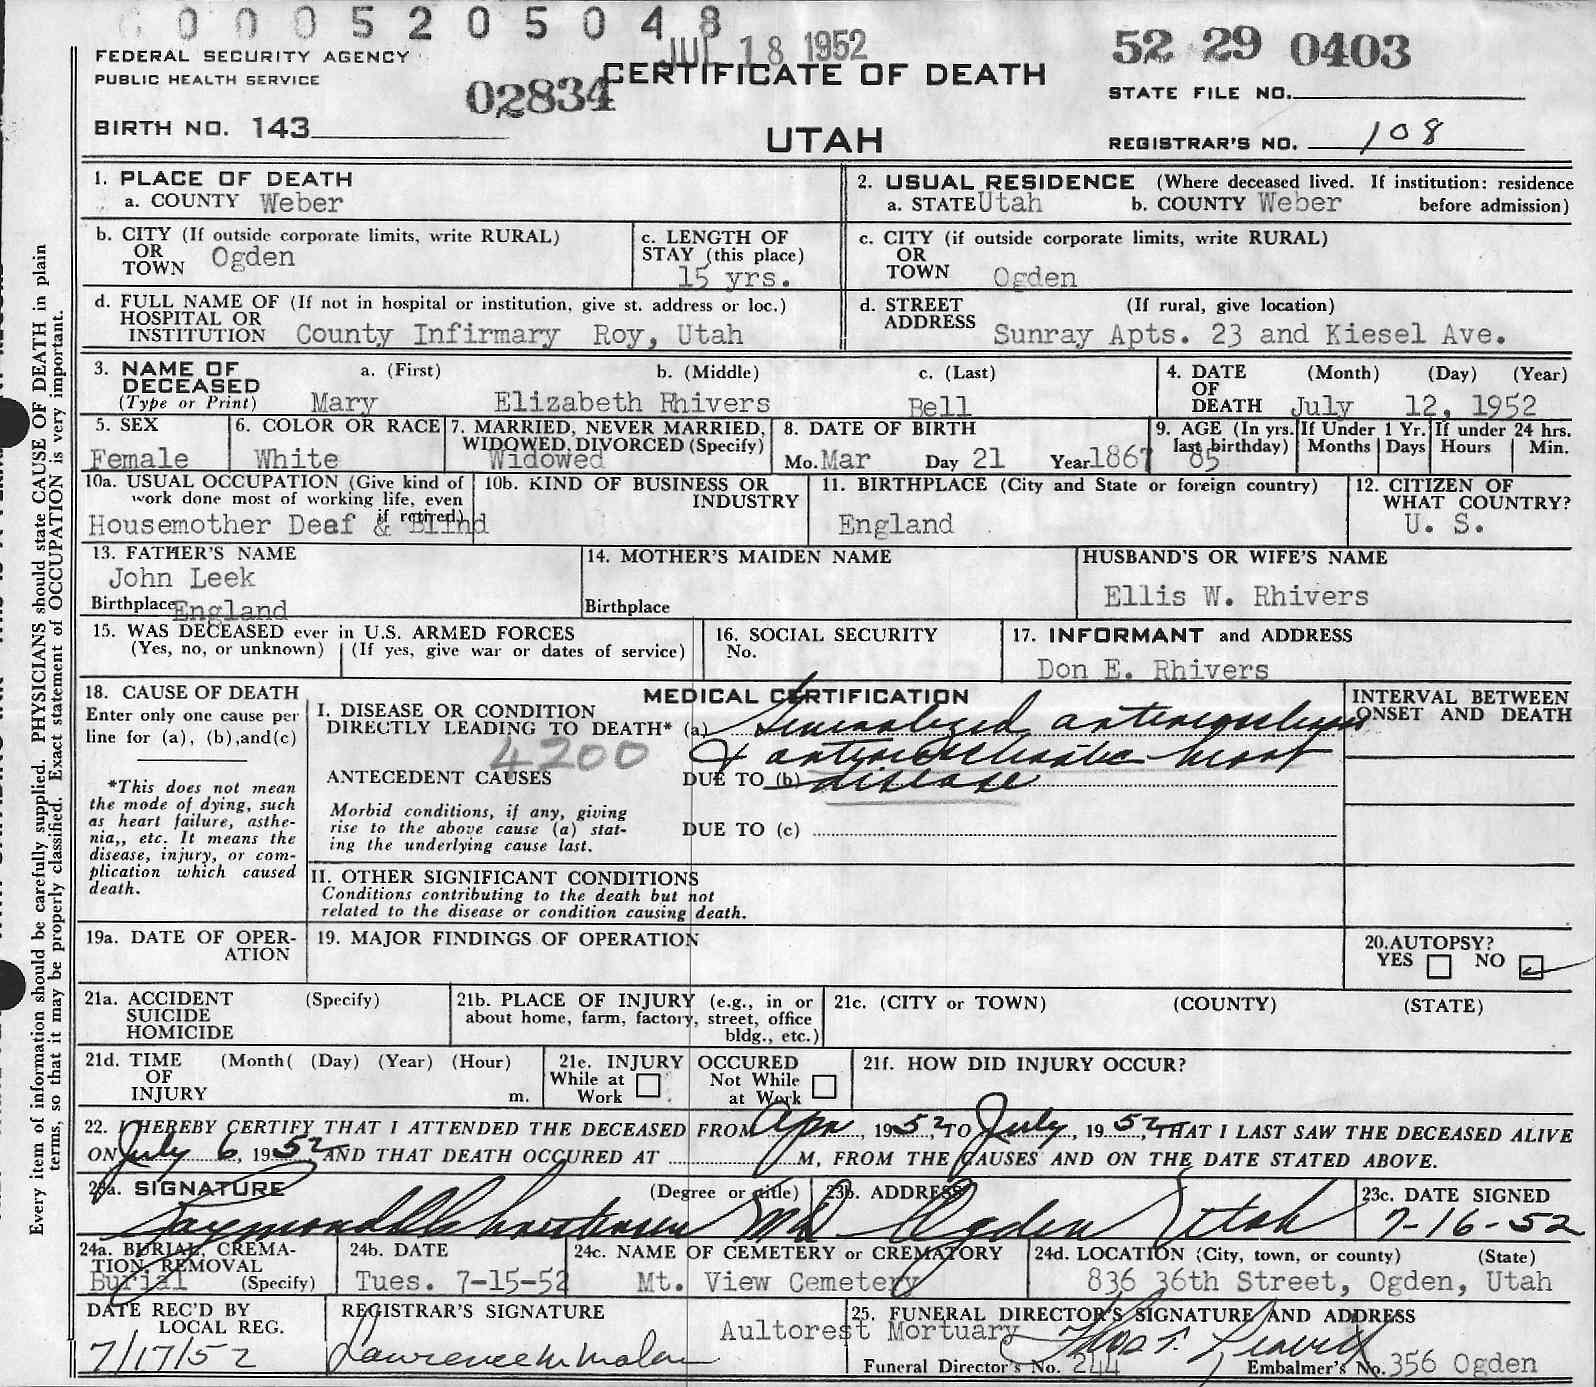 0005205048
JUL 18 1952
52 29 0403
FEDERAL SECURITY AGENCY
PUBLIC HEALTH SERVICE
02834
CERTIFICATE OF DEATH
STATE FILE NO.
BIRTH NO. 143
UTAH
REGISTRAR'S NO. 108
1. PLACE OF DEATH
a. COUNTY Weber
2. USUAL RESIDENCE (Where deceased lived. If institution: residence before admission)
a. STATE Utah b. COUNTY Weber
b. CITY (If outside corporate limits, write RURAL)
OR
TOWN Ogden
c. LENGTH OF
STAY (this place)
15 yrs.
c. CITY (if outside corporate limits, write RURAL)
OR
TOWN Ogden
d. FULL NAME OF (If not in hospital or institution, give st. address or loc.)
HOSPITAL OR
INSTITUTION County Infirmary Roy, Utah
d. STREET (If rural, give location)
ADDRESS Sunray Apts. 23 and Kiesel Ave.
3. NAME OF a. (First) b. (Middle) c. (Last)
DECEASED
(Type or Print) Mary Elizabeth Rhivers Bell
4. DATE (Month) (Day) (Year)
OF
DEATH July 12, 1952
5. SEX
Female
6. COLOR OR RACE
White
7. MARRIED, NEVER MARRIED,
WIDOWED, DIVORCED (Specify)
Widowed
8. DATE OF BIRTH
Mo. Mar Day 21 Year 1867
9. AGE (In yrs. last birthday) 85
If Under 1 Yr. Months Days
If under 24 hrs. Hours Min.
10a. USUAL OCCUPATION (Give kind of
work done most of working life, even
if retired)
Housemother Deaf & Blind
10b. KIND OF BUSINESS OR
INDUSTRY
11. BIRTHPLACE (City and State or foreign country)
England
12. CITIZEN OF
WHAT COUNTRY?
U. S.
13. FATHER'S NAME
John Leek
Birthplace England
14. MOTHER'S MAIDEN NAME
Birthplace
HUSBAND'S OR WIFE'S NAME
Ellis W. Rhivers
15. WAS DECEASED ever in U.S. ARMED FORCES
(Yes, no, or unknown) (If yes, give war or dates of service)
16. SOCIAL SECURITY
No.
17. INFORMANT and ADDRESS
Don E. Rhivers
18. CAUSE OF DEATH
Enter only one cause per
line for (a), (b),and(c)
*This does not mean
the mode of dying, such
as heart failure, asthe-
nia,, etc. It means the
disease, injury, or com-
plication which caused
death.
MEDICAL CERTIFICATION
I. DISEASE OR CONDITION
DIRECTLY LEADING TO DEATH* (a) Generalized arteriosclerosis
4200
& arteriosclerotic heart
ANTECEDENT CAUSES DUE TO (b) disease
Morbid conditions, if any, giving
rise to the above cause (a) stat-
ing the underlying cause last.
DUE TO (c)
INTERVAL BETWEEN
ONSET AND DEATH
II. OTHER SIGNIFICANT CONDITIONS
Conditions contributing to the death but not
related to the disease or condition causing death.
19a. DATE OF OPER-
ATION
19. MAJOR FINDINGS OF OPERATION
20.AUTOPSY?
YES NO
21a. ACCIDENT (Specify)
SUICIDE
HOMICIDE
21b. PLACE OF INJURY (e.g., in or
about home, farm, factory, street, office
bldg., etc.)
21c. (CITY or TOWN) (COUNTY) (STATE)
21d. TIME (Month( (Day) (Year) (Hour)
OF
INJURY m.
21e. INJURY OCCURED
While at Work
Not While at Work
21f. HOW DID INJURY OCCUR?
22. I HEREBY CERTIFY THAT I ATTENDED THE DECEASED FROM Apr, 1952, TO July, 1952, THAT I LAST SAW THE DECEASED ALIVE
ON July 6, 1952 AND THAT DEATH OCCURED AT M, FROM THE CAUSES AND ON THE DATE STATED ABOVE.
23a. SIGNATURE (Degree or title) 23b. ADDRESS 23c. DATE SIGNED
MD Ogden Utah 7-16-52
24a. BURIAL, CREMA-
TION, REMOVAL
Burial (Specify)
24b. DATE
Tues. 7-15-52
24c. NAME OF CEMETERY or CREMATORY
Mt. View Cemetery
24d. LOCATION (City, town, or county) (State)
836 36th Street, Ogden, Utah
DATE REC'D BY
LOCAL REG.
7/17/52
REGISTRAR'S SIGNATURE
Lawrence M Malan
25. FUNERAL DIRECTOR'S SIGNATURE AND ADDRESS
Aultorest Mortuary
Funeral Director's No. 244 Embalmer's No. 356 Ogden
Every item of information should be carefully supplied. PHYSICIANS should state CAUSE OF DEATH in plain
terms, so that it may be properly classified. Exact statement of OCCUPATION is very important.